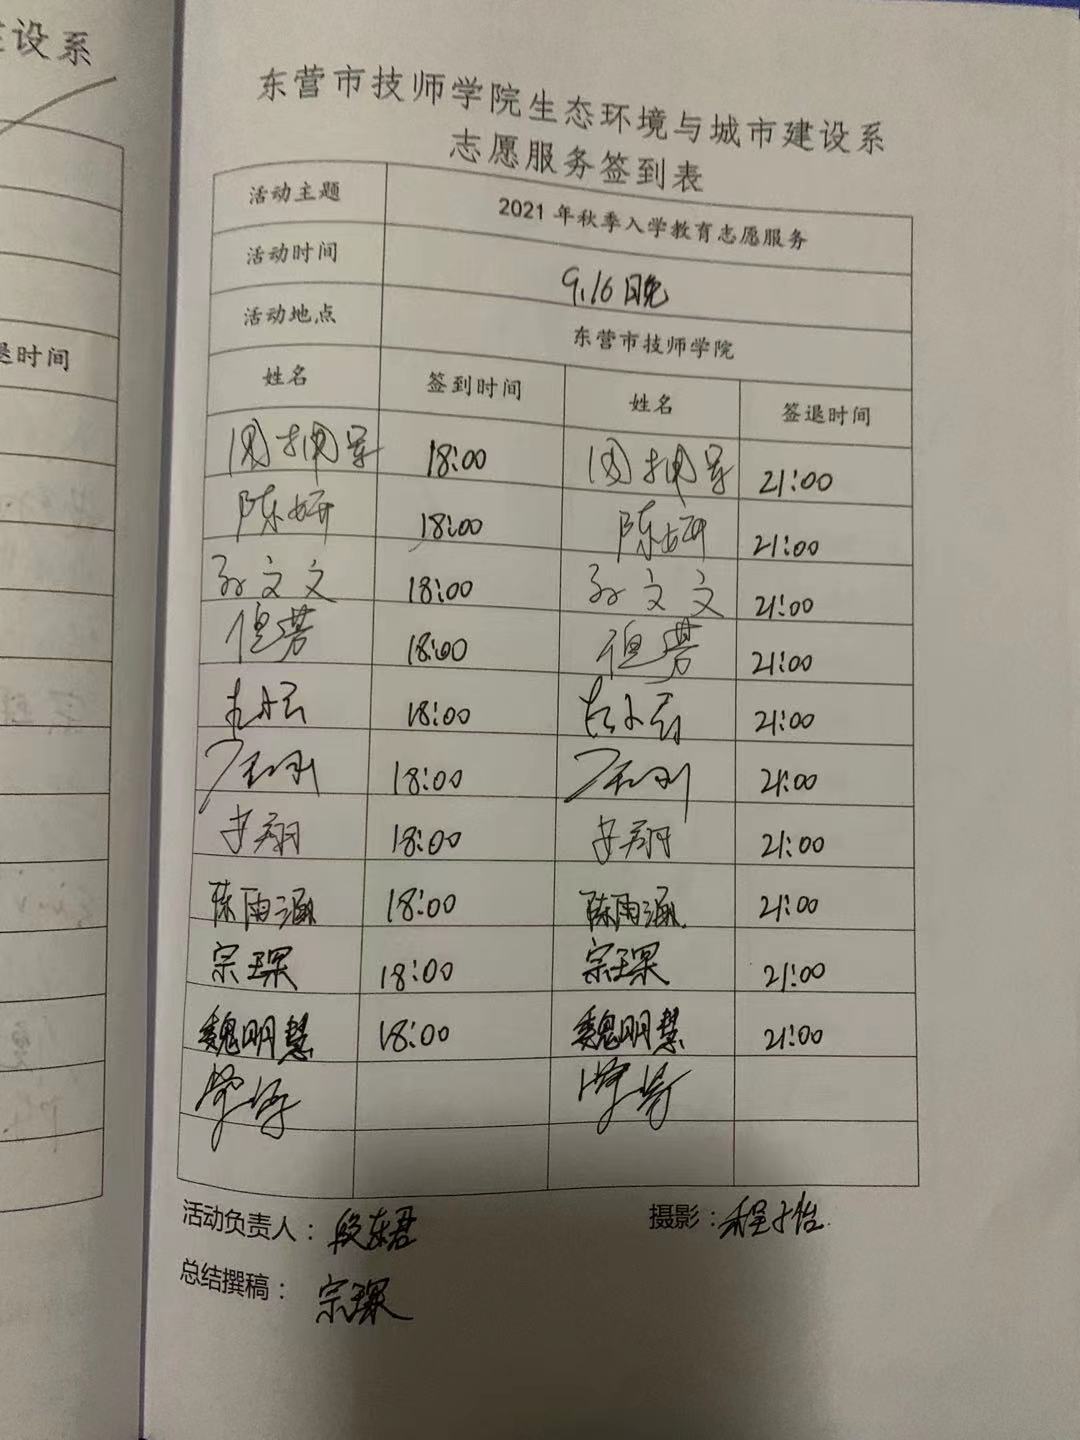 设系
退时间
东营市技师学院生态环境与城市建设系
志愿服务签到表
活动主题 2021年秋季入学教育志愿服务
活动时间 9.16 晚
活动地点 东营市技师学院
姓名 签到时间 姓名 签退时间
18:00 21:00
陈妍 18:00 陈妍 21:00
孙文文 18:00 孙文文 21:00
18:00 21:00
18:00 21:00
18:00 21:00
李翔 18:00 李翔 21:00
陈雨涵 18:00 陈雨涵 21:00
宗璟 18:00 宗璟 21:00
魏明慧 18:00 魏明慧 21:00
活动负责人：段东君 摄影：程子怡
总结撰稿：宗璟